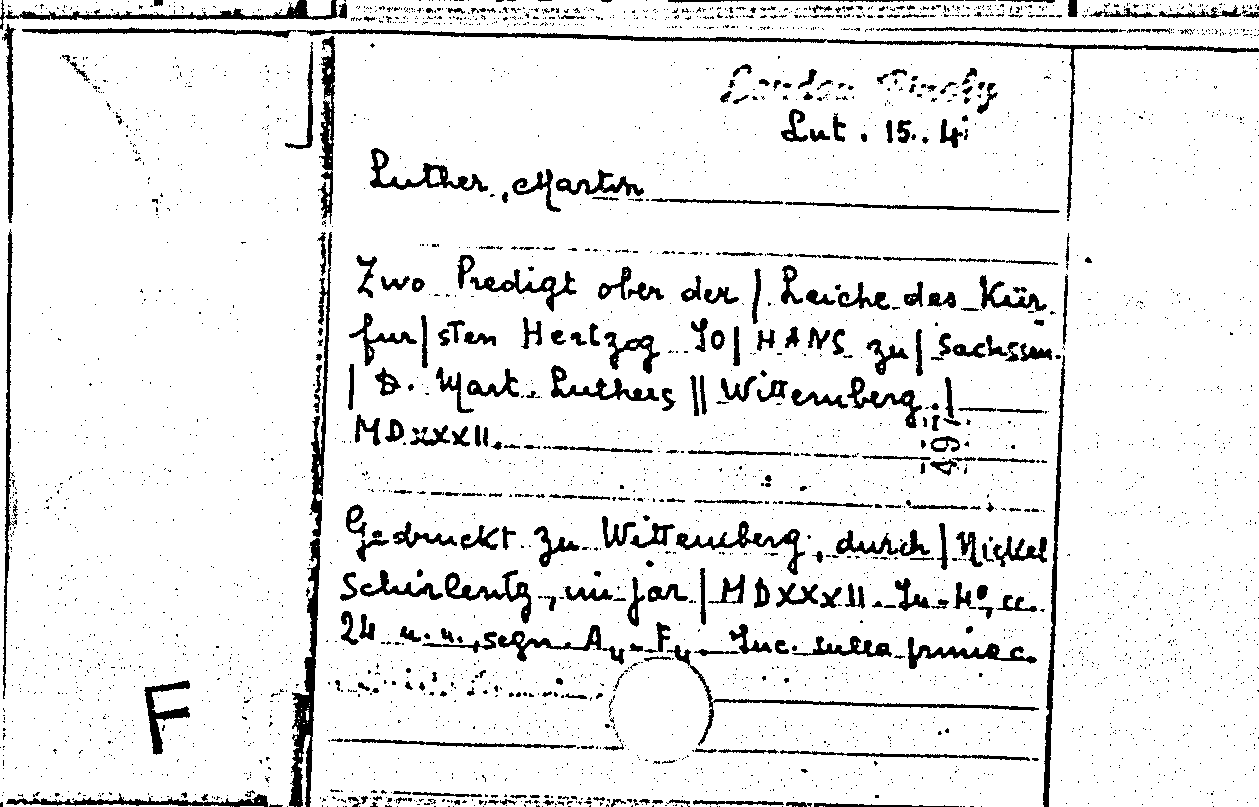 London
Lut. 15. 4
Luther, Martin
Zwo Predigt ober der | Leiche des Kür
fur|sten Hertzog JO|HANS zu | Sachssen.
| D. Mart. Luthers || Wittemberg. |
MDXXXII.
497
Gedruckt zu Wittemberg, durch | Nickel
Schirlentz, im jar | MDXXXII. In-4º, cc.
24 n.n., segn. A4-F4. Inc. sulla prima c.
F